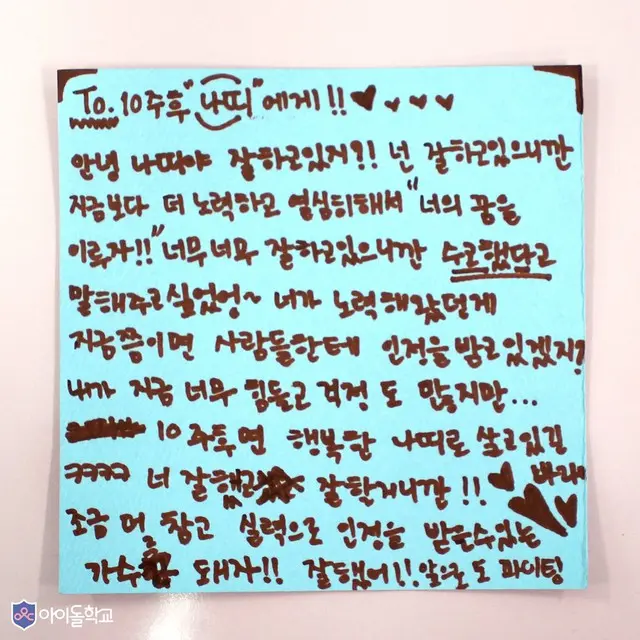 To. 10주후 "나띠"에게!!
안녕 나띠야 잘하고있지?! 넌 잘하고있으니깐
지금보다 더 노력하고 열심히해서 "너의 꿈을
이루자!!" 너무너무 잘하고있으니깐 수고했다고
말해주고싶었엉~ 너가 노력해왔던게
지금쯤이면 사람들한테 인정을 받고있겠지?
내가 지금 너무 힘들고 걱정 도 많지만...
10 주후면 행복한 나띠로 살고있길
바라
ㅋㅋㅋㅋ 너 잘해고 잘할거니깐!!
조금 더 참고 실력으로 인정을 받은수있는
가수 돼자!! 잘했어!! 앞으로 도 파이팅
아이돌학교